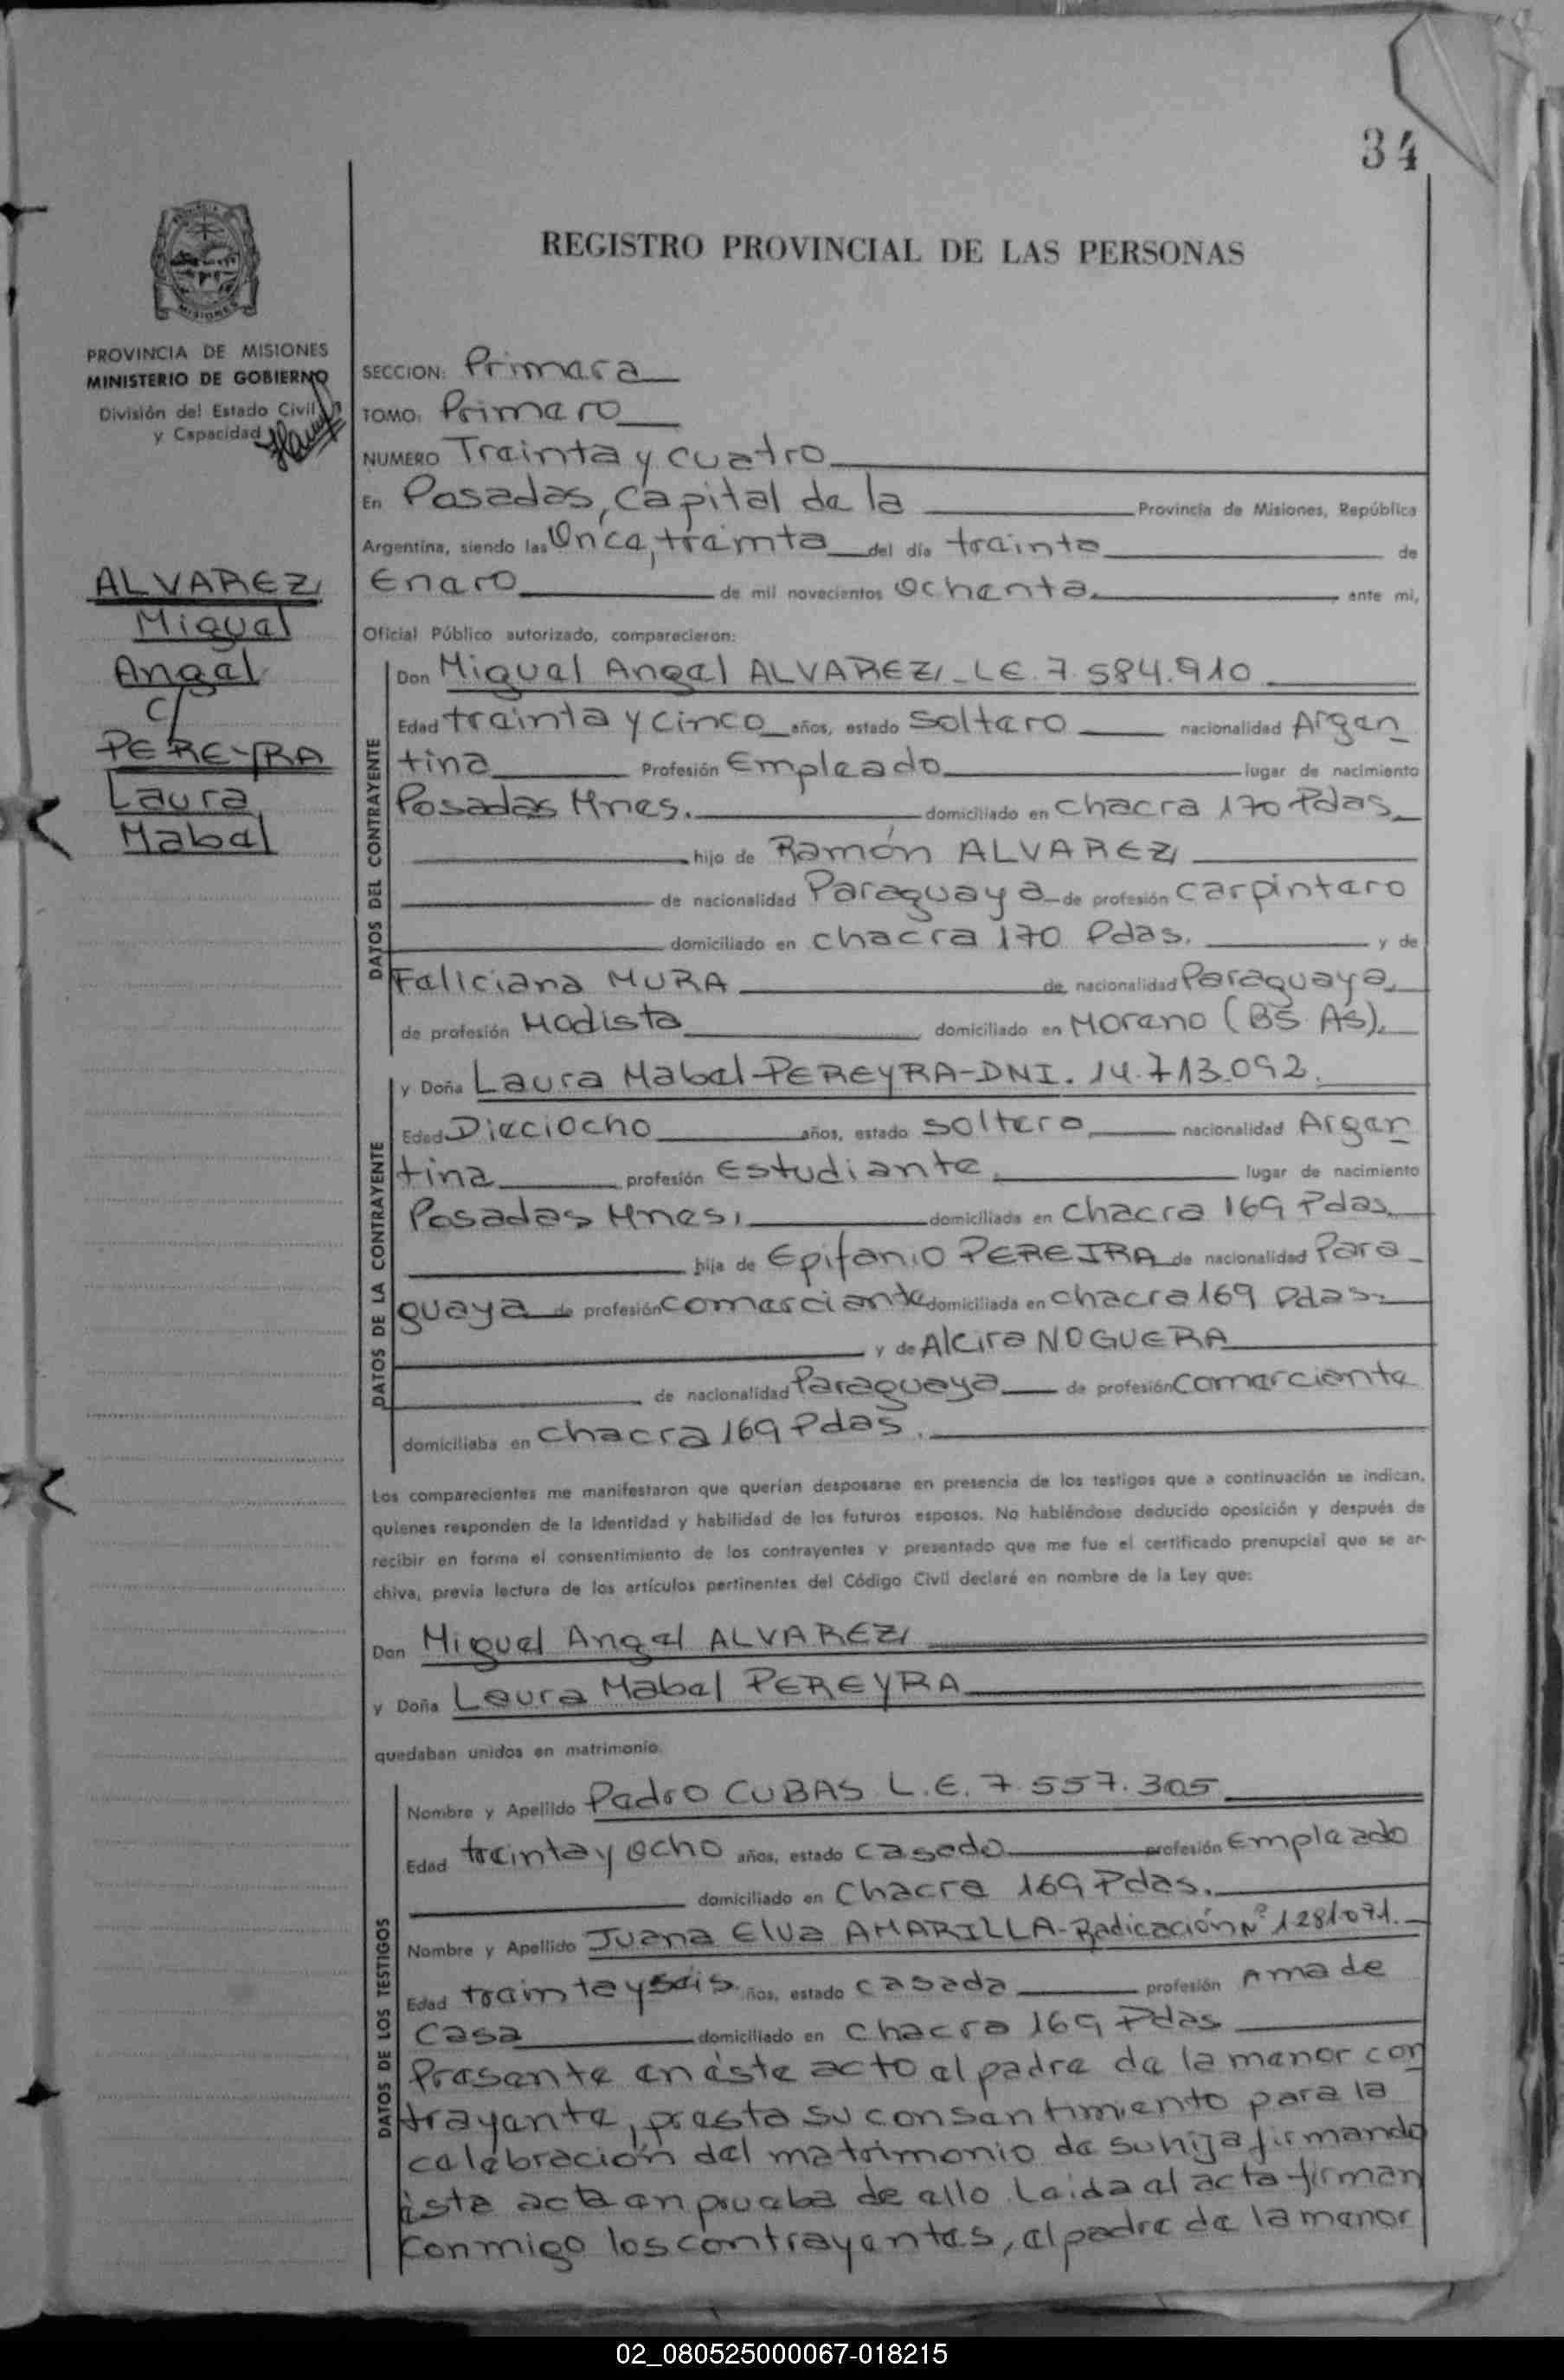 34
REGISTRO PROVINCIAL DE LAS PERSONAS
PROVINCIA DE MISIONES
MINISTERIO DE GOBIERNO
División del Estado Civil
y Capacidad
ALVAREZ
Miguel
Angel
c/
PEREYRA
Laura
Mabel
SECCION: Primera
TOMO: Primero
NUMERO Treinta y cuatro
En Posadas, Capital de la Provincia de Misiones, República
Argentina, siendo las Once, treinta del día treinta de
Enero de mil novecientos Ochenta, ante mi,
Oficial Público autorizado, comparecieron:
DATOS DEL CONTRAYENTE
Don Miguel Angel ALVAREZ - LE. 7.584.910
Edad treinta y cinco años, estado soltero nacionalidad Argen
tina Profesión Empleado lugar de nacimiento
Posadas Mnes. domiciliado en chacra 170 Pdas
hijo de Ramón ALVAREZ
de nacionalidad Paraguaya de profesión carpintero
domiciliado en chacra 170 Pdas. y de
Feliciana MURA de nacionalidad Paraguaya
de profesión Modista domiciliado en Moreno (BS AS).
DATOS DE LA CONTRAYENTE
y Doña Laura Mabel PEREYRA-DNI. 14.713.092.
Edad Dieciocho años, estado soltera nacionalidad Argen
tina profesión Estudiante lugar de nacimiento
Posadas Mnes, domiciliada en chacra 169 Pdas.
hija de Epifanio PEREIRA de nacionalidad Para
guaya de profesión comerciante domiciliada en chacra 169 Pdas.
y de Alcira NOGUERA
de nacionalidad Paraguaya de profesión comerciante
domiciliaba en chacra 169 Pdas.
Los comparecientes me manifestaron que querían desposarse en presencia de los testigos que a continuación se indican,
quienes responden de la identidad y habilidad de los futuros esposos. No habiéndose deducido oposición y después de
recibir en forma el consentimiento de los contrayentes y presentado que me fue el certificado prenupcial que se ar-
chiva, previa lectura de los artículos pertinentes del Código Civil declaré en nombre de la Ley que:
Don Miguel Angel ALVAREZ
y Doña Laura Mabel PEREYRA
quedaban unidos en matrimonio.
DATOS DE LOS TESTIGOS
Nombre y Apellido Pedro CUBAS L.E. 7.557.305
Edad treinta y ocho años, estado casado profesión Empleado
domiciliado en Chacra 169 Pdas.
Nombre y Apellido Juana Elva AMARILLA-Radicación Nº 1281071.
Edad treinta y seis años, estado casada profesión Ama de
casa domiciliado en chacra 169 Pdas
Presente en éste acto el padre de la menor con
trayente, presta su consentimiento para la
celebración del matrimonio de su hija firmando
ésta acta en prueba de ello. Leida el acta firman
conmigo los contrayentes, el padre de la menor
02_080525000067-018215